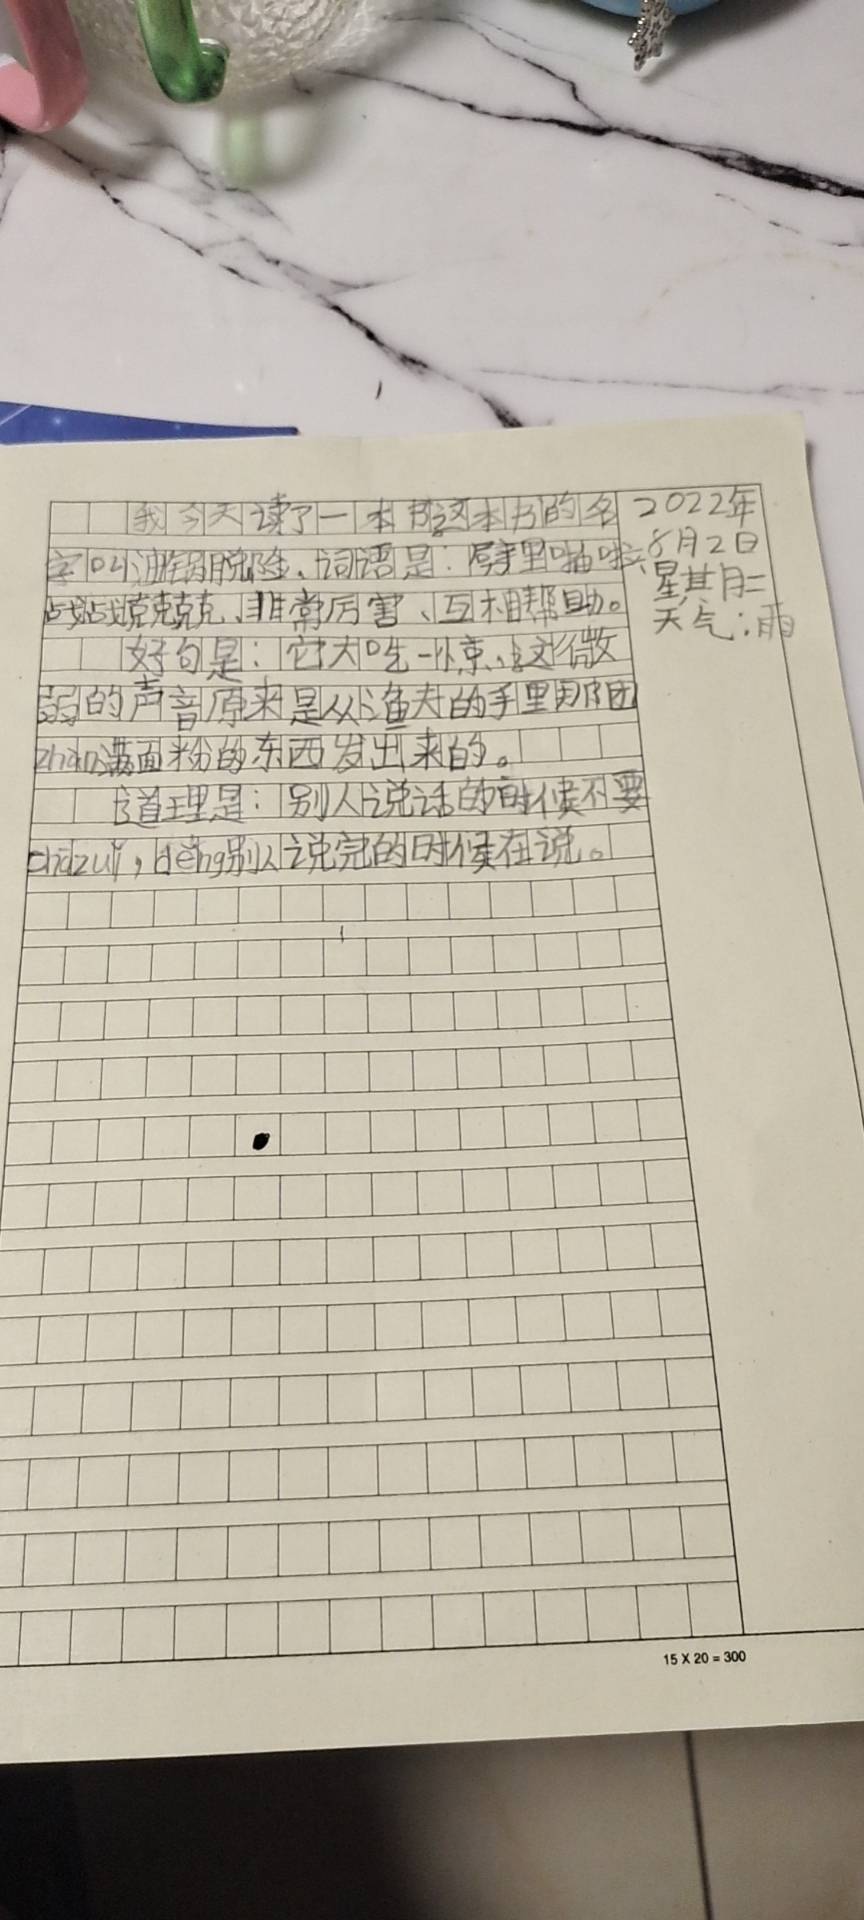 我今天读了一本书这本书的名
字叫油锅脱险、词语是：劈里啪啦、
战战兢兢、非常厉害、互相帮助。
好句是：它大吃一惊，这微
弱的声音原来是从渔夫的手里那团
zhān满面粉的东西发出来的。
道理是：别人说话的时候不要
chāzuǐ，děng别人说完的时候在说。
2022年
8月2日
星其月二
天气：雨
15 X 20 = 300